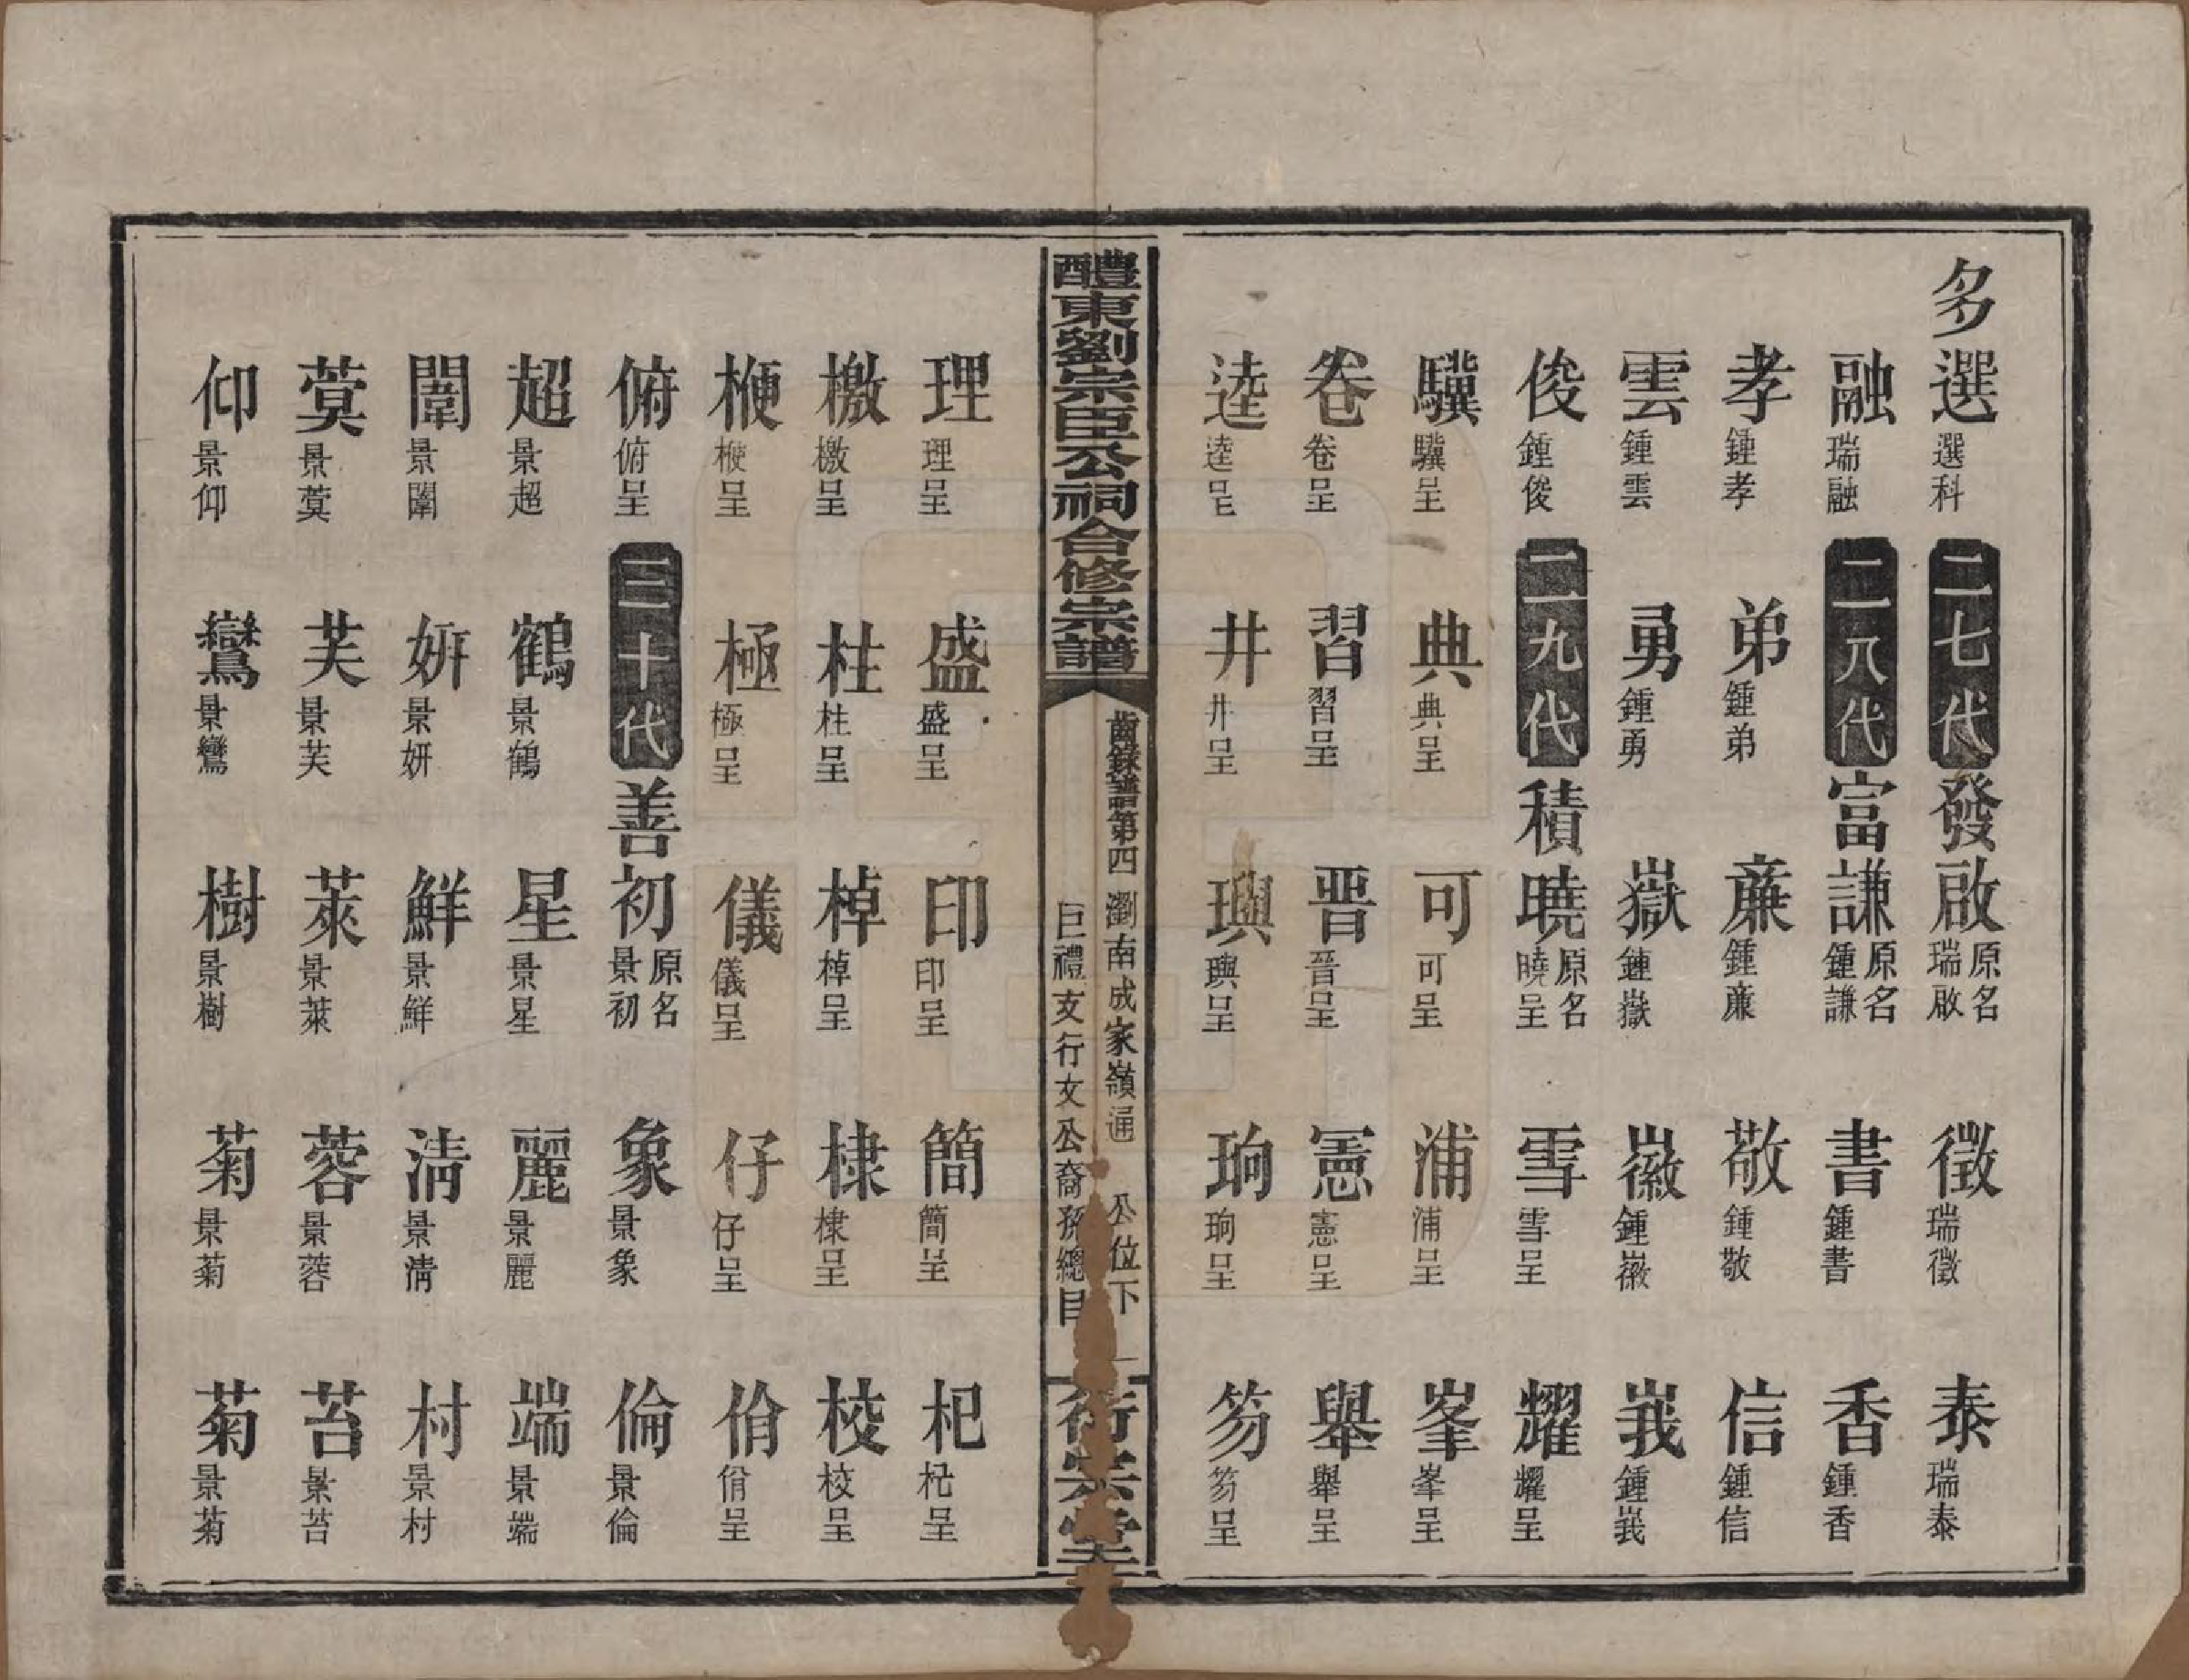 多選選科 二七代 發啟原名瑞啟 徵瑞徵 泰瑞泰
融瑞融 二八代 富謙原名鍾謙 書鍾書 香鍾香
孝鍾孝 弟鍾弟 亷鍾亷 敬鍾敬 信鍾信
雲鍾雲 勇鍾勇 嶽鍾嶽 嶶鍾嶶 峩鍾峩
俊鍾俊 二九代 積曉原名曉呈 雪雪呈 耀耀呈
驥驥呈 典典呈 可可呈 浦浦呈 峯峯呈
卷卷呈 習習呈 晋晉呈 憲憲呈 舉舉呈
逵逵呈 井井呈 璵璵呈 珦珦呈 笏笏呈
醴東劉宗臣公祠合修宗譜
齒錄譜第四 瀏南成家嶺通 公位下
巨禮支行文公裔孫總目 一
理理呈 盛盛呈 印印呈 簡簡呈 杞杞呈
檄檄呈 柱柱呈 棹棹呈 棣棣呈 校校呈
楩楩呈 極極呈 儀儀呈 仔仔呈 佾佾呈
俯俯呈 三十代 善初原名景初 象景象 倫景倫
超景超 鶴景鶴 星景星 麗景麗 端景端
闈景闈 妍景妍 鮮景鮮 淸景淸 村景村
蓂景蓂 芙景芙 萊景萊 蓉景蓉 苔景苔
仰景仰 鸞景鸞 樹景樹 菊景菊 菊景菊